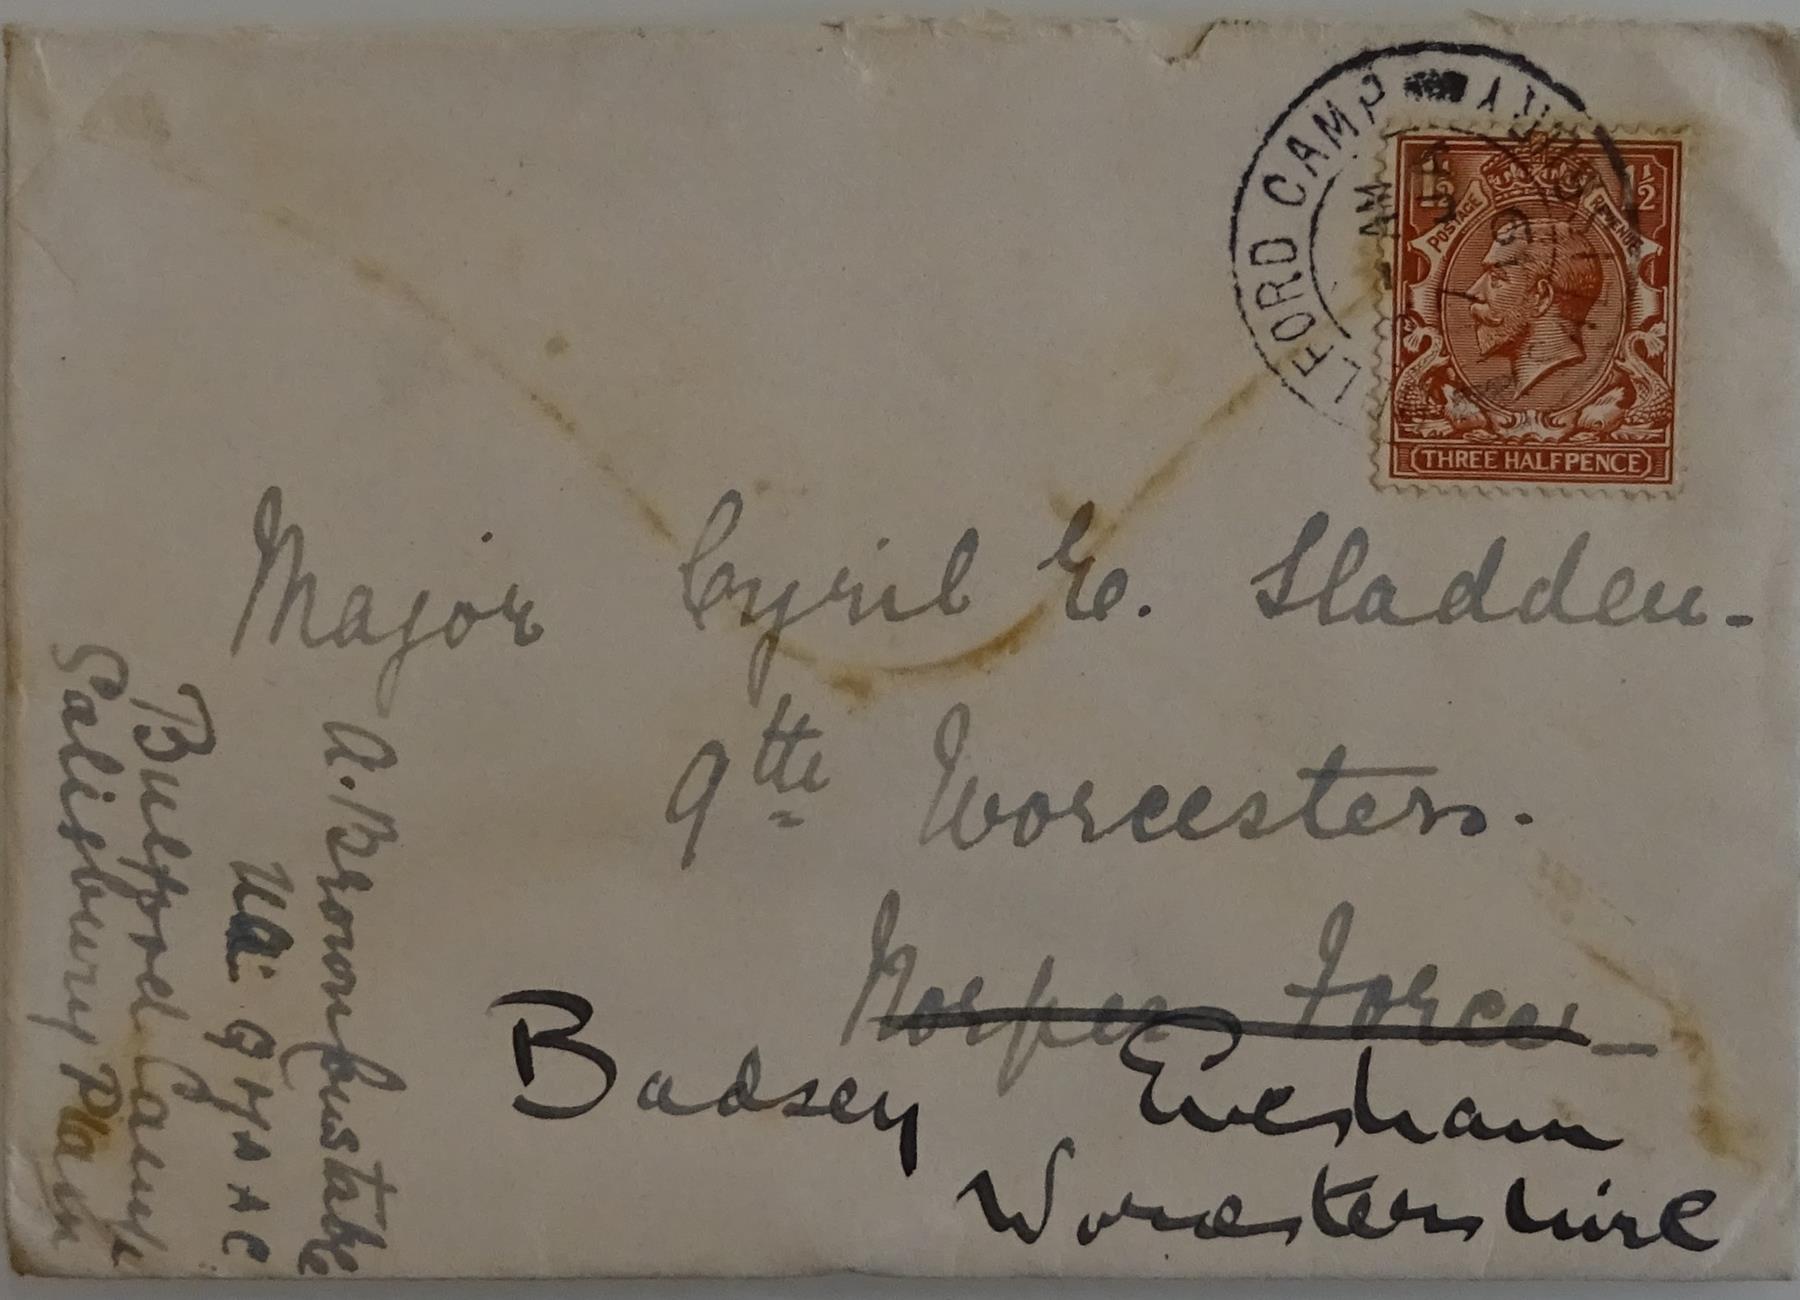 LFORD CAMP
AM
JA
19
1½ 1½
POSTAGE REVENUE
(THREE HALFPENCE)
Major Cyril E. Sladden -
9th Worcesters.
Norper Force
Badsey Evesham
Worcestershire
A. Brownfustabe
Bulford Camp
Salisbury Plain